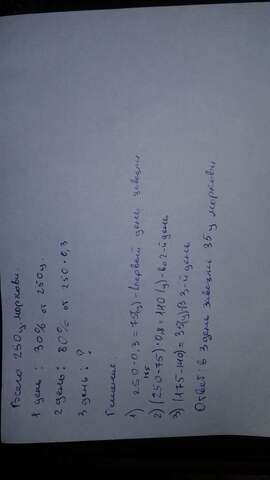 Всего 250 ц моркови.
1 день: 30% от 250 ц.
2 день: 80% от 250·0,3
3 день: ?
Решение.
1) 250·0,3=75(ц)-первый день завезли
175
2) (250-75)·0,8=140(ц)-во 2-й день
3) (175-140)=35(ц) в 3-й день
Ответ: в 3 день завезли 35 ц моркови